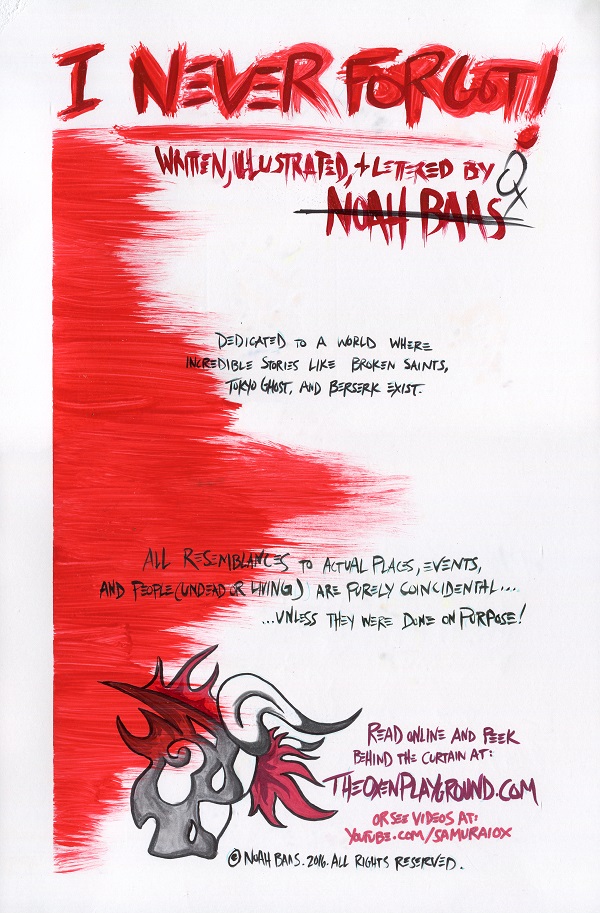 I NEVER FORGOT!
WRITTEN, ILLUSTRATED, + LETTERED BY
NOAH BAAS
OX
DEDICATED TO A WORLD WHERE
INCREDIBLE STORIES LIKE BROKEN SAINTS,
TOKYO GHOST, AND BERSERK EXIST.
ALL RESEMBLANCES TO ACTUAL PLACES, EVENTS,
AND PEOPLE (UNDEAD OR LIVING) ARE PURELY COINCIDENTAL...
...UNLESS THEY WERE DONE ON PURPOSE!
READ ONLINE AND PEEK
BEHIND THE CURTAIN AT:
THEOXENPLAYGROUND.COM
OR SEE VIDEOS AT:
YOUTUBE.COM/SAMURAIOX
© NOAH BAAS. 2016. ALL RIGHTS RESERVED.